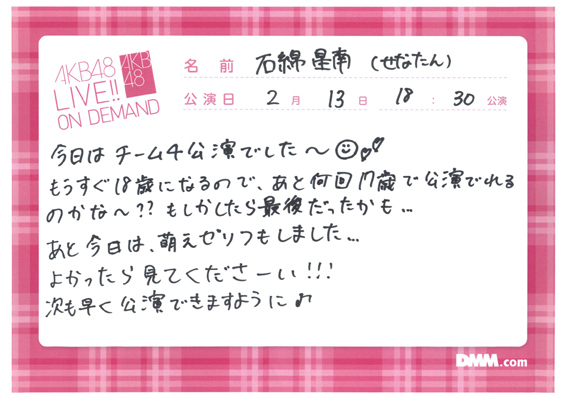 AKB48
LIVE!!
ON DEMAND
AKB
48
名前 石綿星南 (せなたん)
公演日 2月 13日 18:30公演
今日はチーム4公演でした〜
もうすぐ18歳になるので、あと何回17歳で公演でれる
のかな〜?? もしかしたら最後だったかも...
あと今日は、萌えゼリフもしました...
よかったら見てくださーい!!!
次も早く公演できますように♪
DMM.com